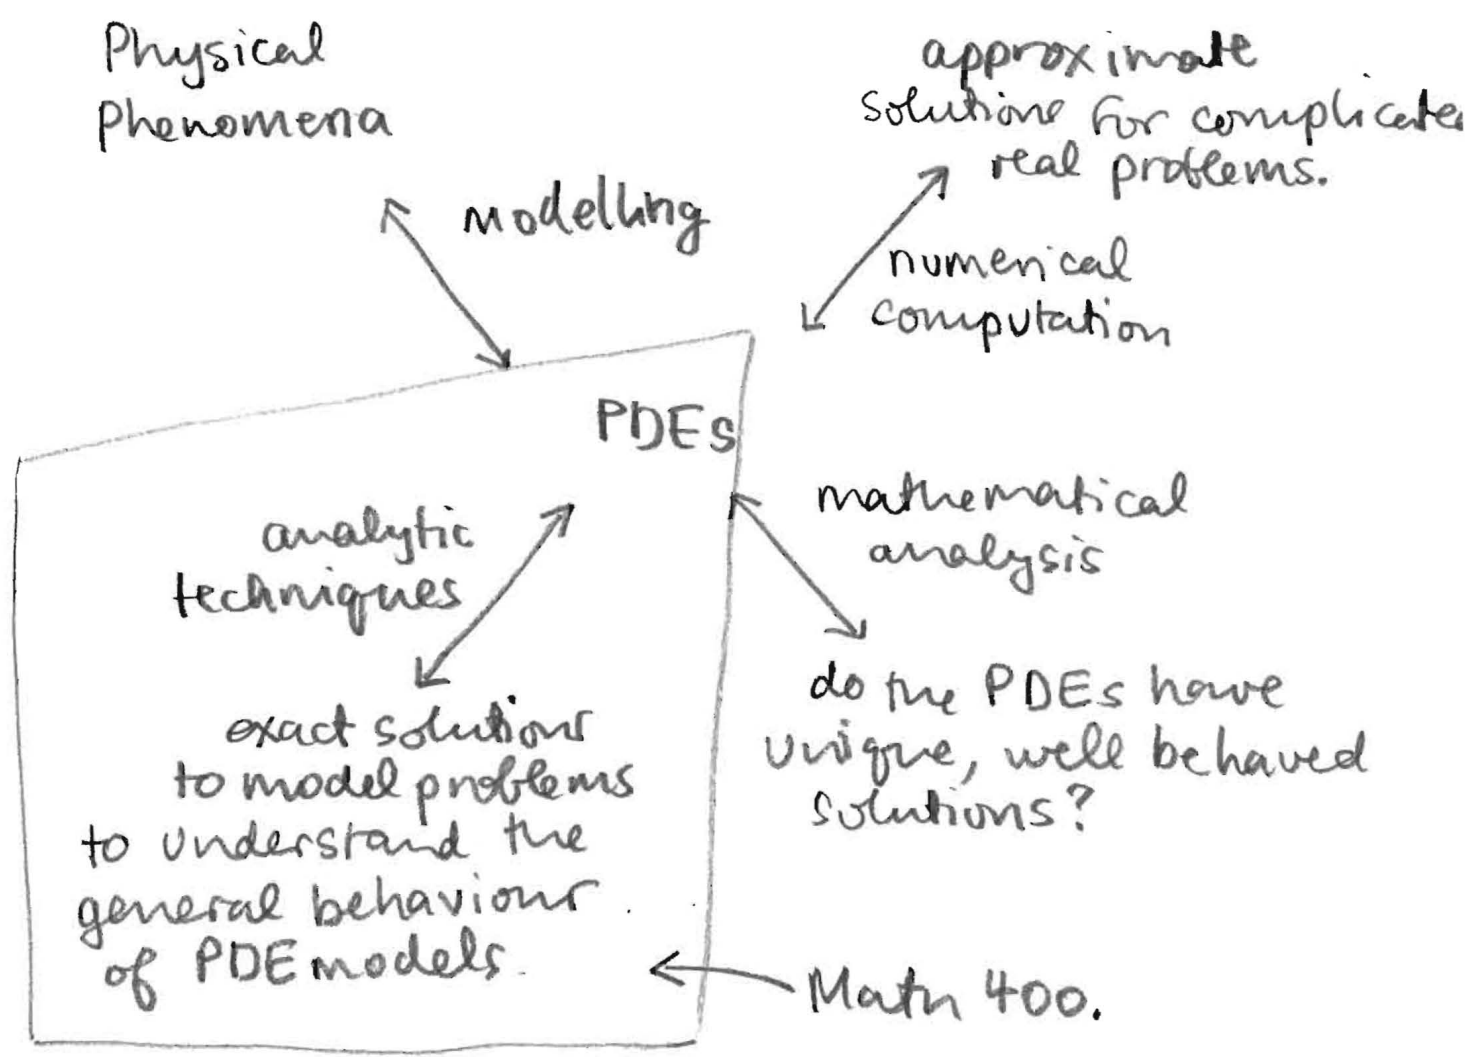 Physical
Phenomena
modelling
approximate
solutions for complicated
real problems.
numerical
computation
PDEs
analytic
techniques
exact solutions
to model problems
to understand the
general behaviour
of PDE models.
mathematical
analysis
do the PDEs have
unique, well behaved
solutions?
Math 400.